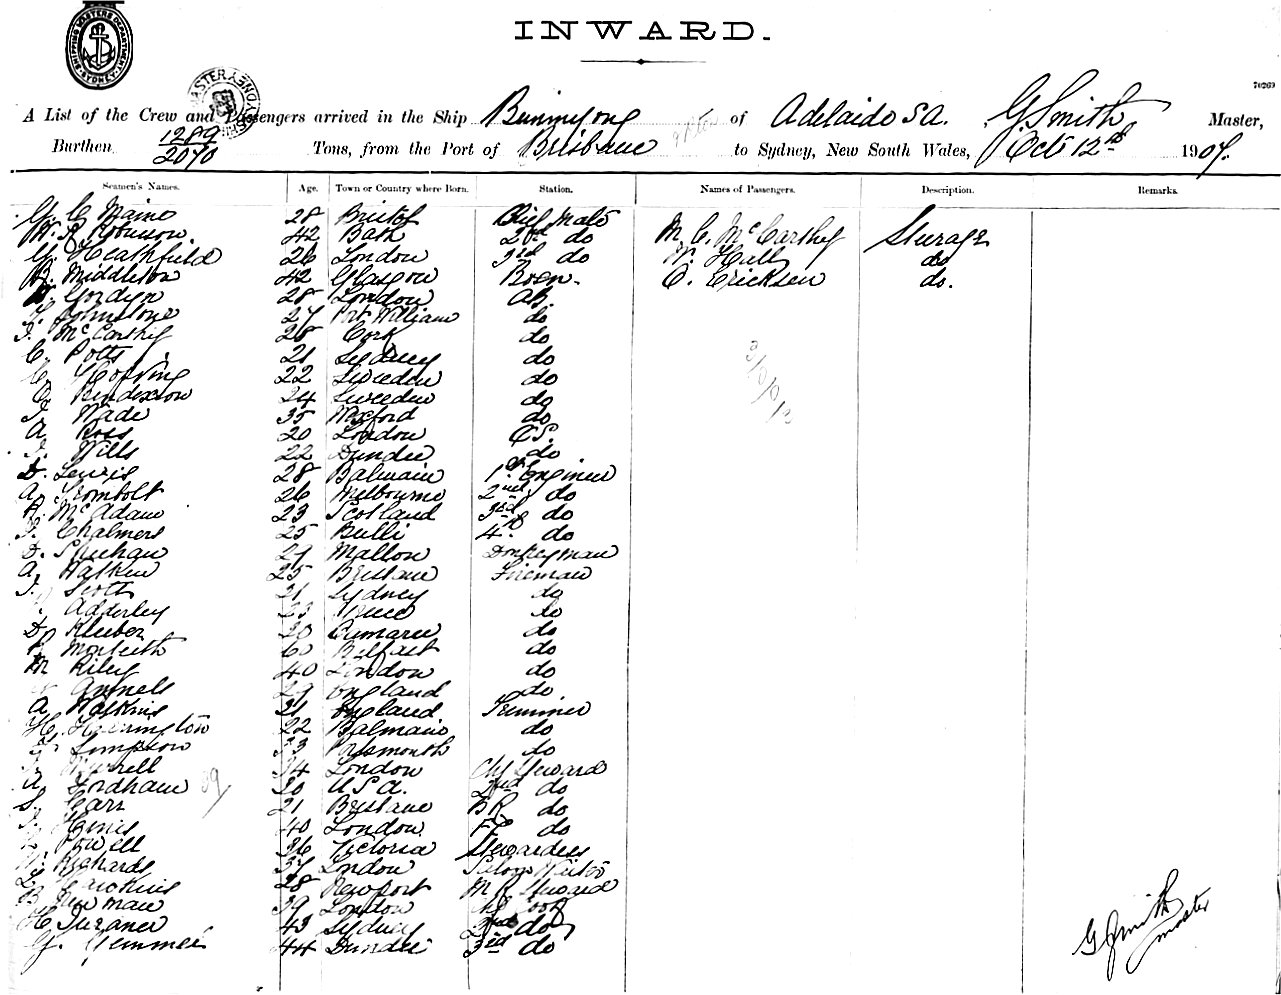 SHIPPING MASTERS DEPARTMENT SYDNEY
INWARD.
70269
A List of the Crew and Passengers arrived in the Ship Buninyong of Adelaide SA. G. Smith, Master,
Burthen 1289/2070 Tons, from the Port of Brisbane to Sydney, New South Wales, Oct 12th 1907.
Seamen's Names. Age. Town or Country where Born. Station. Names of Passengers. Description. Remarks.
G. C. Maine 28 Bristol Chief Mate
W. Robinson 42 Bath 2nd do M. C. McCarthy Steerage
Heathfield 26 London 3rd do W. Hull do
B. Middleton 42 Glasgow Bosn. O. Ericksen do.
Gordyn 28 London AB.
Johnstone 27 Port William do
J. McCarthy 28 Cork do
C. Potts 21 Sydney do
22 Sweeden do
C. Bendixson 24 Sweeden do
J. Wade 35 Wexford do
A Ross 20 London OS.
J. Wills 22 Dundee do
D. Lewis 28 Balmain 1st Engineer
A. Trombolt 26 Melbourne 2nd do
McAdam 23 Scotland 3rd do
J. Chalmers 25 Bulli 4th do
D. Sheehan 29 Mallow Donkeyman
A. 25 Brisbane Fireman
J. Scott 21 Sydney do
Adderley 23 do
D. Kleiber 20 do
Monteith 60 Belfast do
M Riley 40 London do
29 England do
A. Watkins 21 England Trimmer
H. Harrington 22 Balmain do
Simpson 33 Portsmouth do
34 London Chf Steward
A. Fordham 30 U S A. 2nd do
S. Carr 21 Brisbane B R. do
J. 40 London. F C do
Powell 36 Victoria Stewardess
W. Richards 37 London Saloon Waiter
28 Newport M R Steward
B. Newman 39 London Chf Cook
H 43 Sydney 2nd do
G. Gemmel 44 Dundee 3rd do
G Smith
master